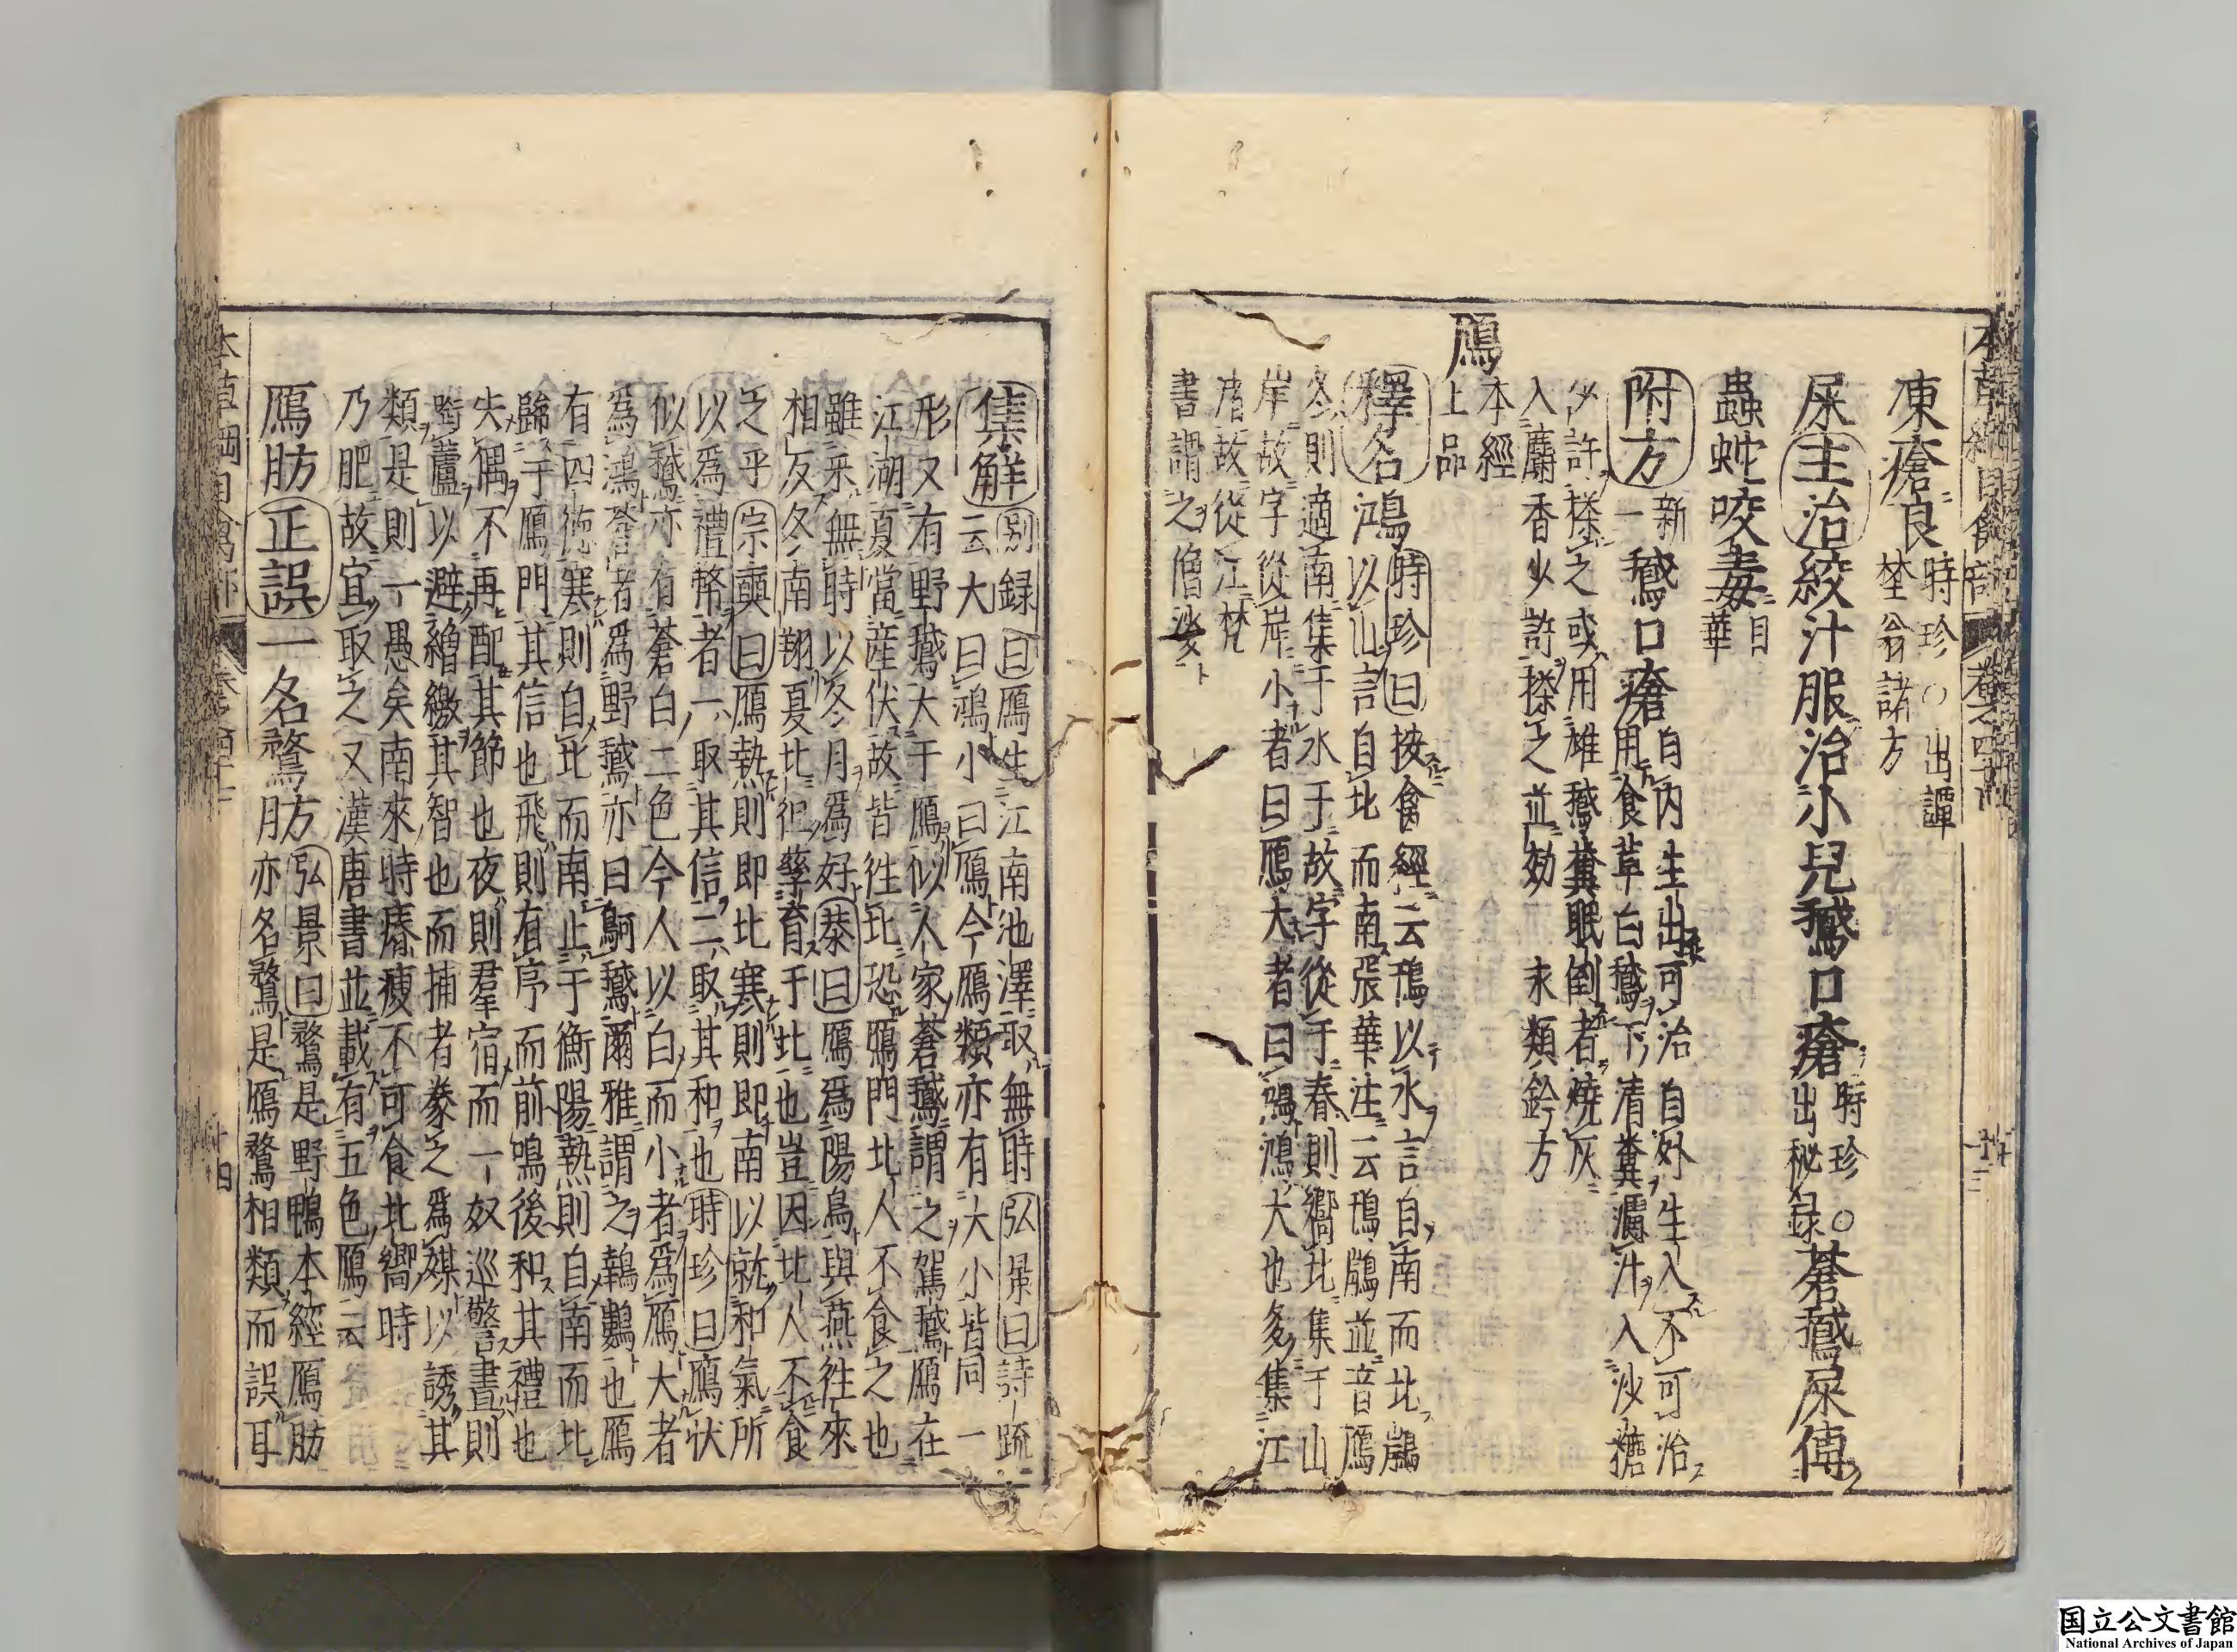 凍瘡良時珍○出譚
埜翁諸方
屎主治絞汁服治小兒鵝口瘡時珍○出秘録蒼鵝屎傅
蟲蛇咬毒日華
附方新一鵝口瘡自内生出可治自外生入不可治
用食草白鵝下清糞濾汁入沙糖
少許搽之或用雄鵝糞眠倒者燒灰
入麝香少許搽之並効 永類鈐方
鴈
本經上品
釋名鴻時珍曰按禽經云鳱以水言自南而北鴈
以山言自北而南張華注云鳱鴈並音鴈
冬則適南集于水于故字從于春則嚮北集于山
岸故字從岸小者曰鴈大者曰鴻鴻大也多集江
渚故從江梵
書謂之僧娑
集解別録曰鴈生江南池澤取無時弘景曰詩疏
云大曰鴻小曰鴈今鴈類亦有大小皆同一
形又有野鵝大于鴈似人家蒼鵝謂之駕鵝鴈在
江湖夏當産伏故皆往北恐鴈門北人不食之也
雖采無時以冬月爲好恭曰鴈爲陽鳥與燕往來
相反冬南翔夏北徂孳育于北也豈因北人不食
之乎宗奭曰鴈熱則即北寒則即南以就和氣所
以爲禮幣者一取其信二取其和也時珍曰鴈狀
似鵝亦有蒼白二色今人以白而小者爲鴈大者
爲鴻蒼者爲野鵝亦曰鴚鵝爾雅謂之鶤䴏也鴈
有四德寒則自北而南止于衡陽熱則自南而北
歸于鴈門其信也飛則有序而前鳴後和其禮也
失偶不再配其節也夜則羣宿而一奴巡警晝則
啣蘆以避繒繳其智也而捕者豢之爲媒以誘其
類是則一愚矣南來時瘠瘦不可食北嚮時
乃肥故宜取之又漢唐書並載有五色鴈云
鴈肪正誤一名鶩肪弘景曰鶩是野鴨本經鴈肪
亦名鶩是鴈鶩相類而誤耳
本草綱目禽部
卷之四十七
十四
国立公文書館
National Archives of Japan